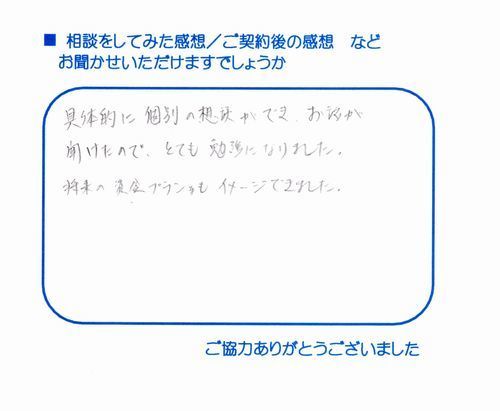 ■ 相談をしてみた感想／ご契約後の感想 など
お聞かせいただけますでしょうか
具体的に 個別の想談ができ、お話が
聞けたので、とても勉強になりました。
将来の資金プランもイメージできました。
ご協力ありがとうございました